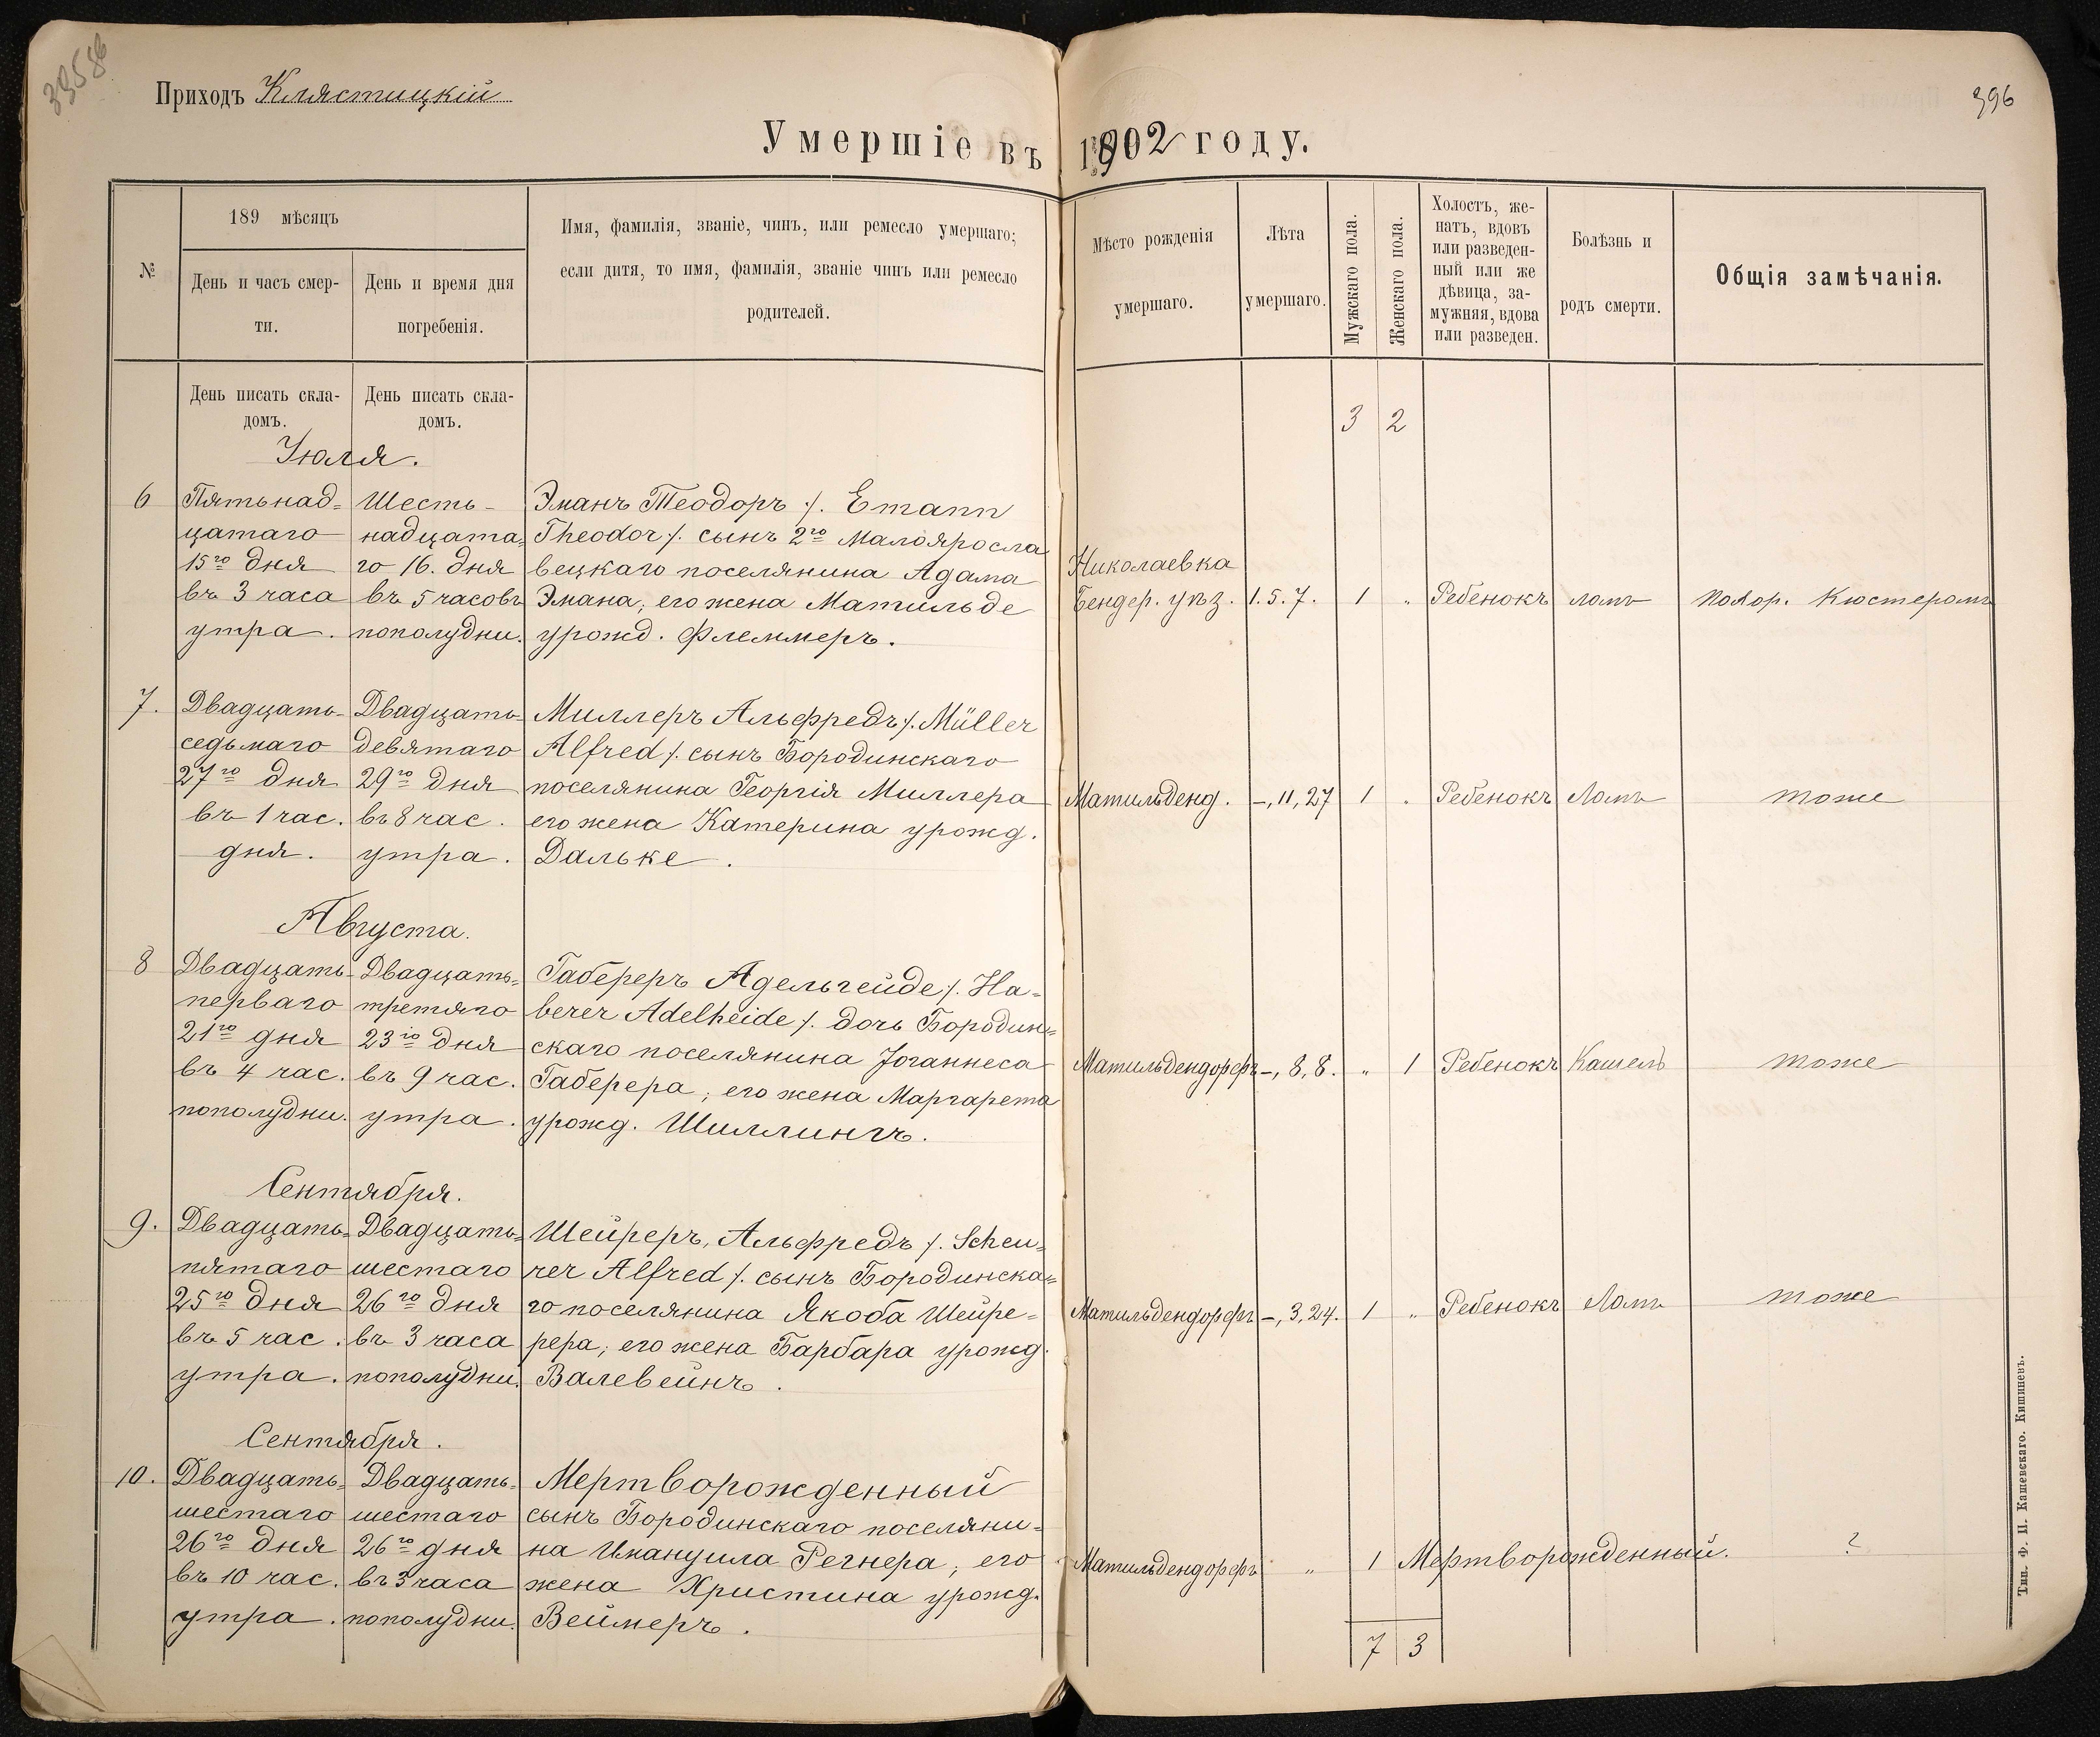 395 об
396
Приходъ Клястицкій
Умершіе въ 1902 году.
№
189 мѣсяцъ
День и часъ смер-
ти.
День и время дня
погребенія.
Имя, фамилія, званіе, чинъ, или ремесло умершаго;
если дитя, то имя, фамилія, званіе чинъ или ремесло
родителей.
Мѣсто рожденія
умершаго.
Лѣта
умершаго.
Мужскаго пола.
Женскаго пола.
Холостъ, же-
натъ, вдовъ
или разведен-
ный или же
дѣвица, за-
мужняя, вдова
или разведен.
Болѣзнь и
родъ смерти.
Общія замѣчанія.
День писать скла-
домъ.
День писать скла-
домъ.
3 2
Іюля.
6
Пятьнад=
цатаго
15го дня
въ 3 часа
утра.
Шесть-
надцата=
го 16. дня
въ 5 часовъ
пополудни.
Эманъ Теодоръ /. Emann
Theodor /. сынъ 2го Малояросла
вецкаго поселянина Адама
Эмана, его жена Матильде
урожд. Флеммеръ.
Николаевка
Бендер. уѣз.
1. 5. 7.
1 "
Ребенокъ
Ломъ
Похор. Кюстеромъ
7.
Двадцать-
седьмаго
27го дня
въ 1 час.
дня.
Двадцать-
девятаго
29го дня
въ 8 час.
утра.
Миллеръ Альфредъ /. Müller
Alfred /. сынъ Бородинскаго
поселянина Георгія Миллера
его жена Катерина урожд.
Дальке.
Матильденд.
-, 11, 27
1 "
Ребенокъ
Ломъ
тоже
Августа.
8
Двадцать-
перваго
21го дня
въ 4 час.
пополудни.
Двадцать=
третяго
23го дня
въ 9 час.
утра.
Габереръ Адельгейде /. Ha=
berer Adelheide /. дочь Бородин=
скаго поселянина Іоганнеса
Габерера, его жена Маргарета
урожд. Шиллингъ.
Матильдендорфъ
-, 8, 8.
" 1
Ребенокъ
Кашель
тоже
Сентября.
9.
Двадцать=
пятаго
25го дня
въ 5 час.
утра.
Двадцать=
шестаго
26го дня
въ 3 часа
пополудни.
Шейреръ, Альфредъ /. Scheu=
rer Alfred /. сынъ Бородинска=
го поселянина Якоба Шейре=
рера, его жена Барбара урожд.
Валевейнъ.
Матильдендорфъ
-, 3, 24.
1 "
Ребенокъ
Ломъ
тоже
Сентября.
10.
Двадцать=
шестаго
26го дня
въ 10 час.
утра.
Двадцать-
шестаго
26го дня
въ 3 часа
пополудни.
Мертворожденный
сынъ Бородинскаго поселяни=
на Имануила Регнера, его
жена Христина урожд.
Веймеръ.
Матильдендорфъ
"
1
Мертворожденный.
?
7 3
Тип. Ф. П. Кашевскаго. Кишиневъ.